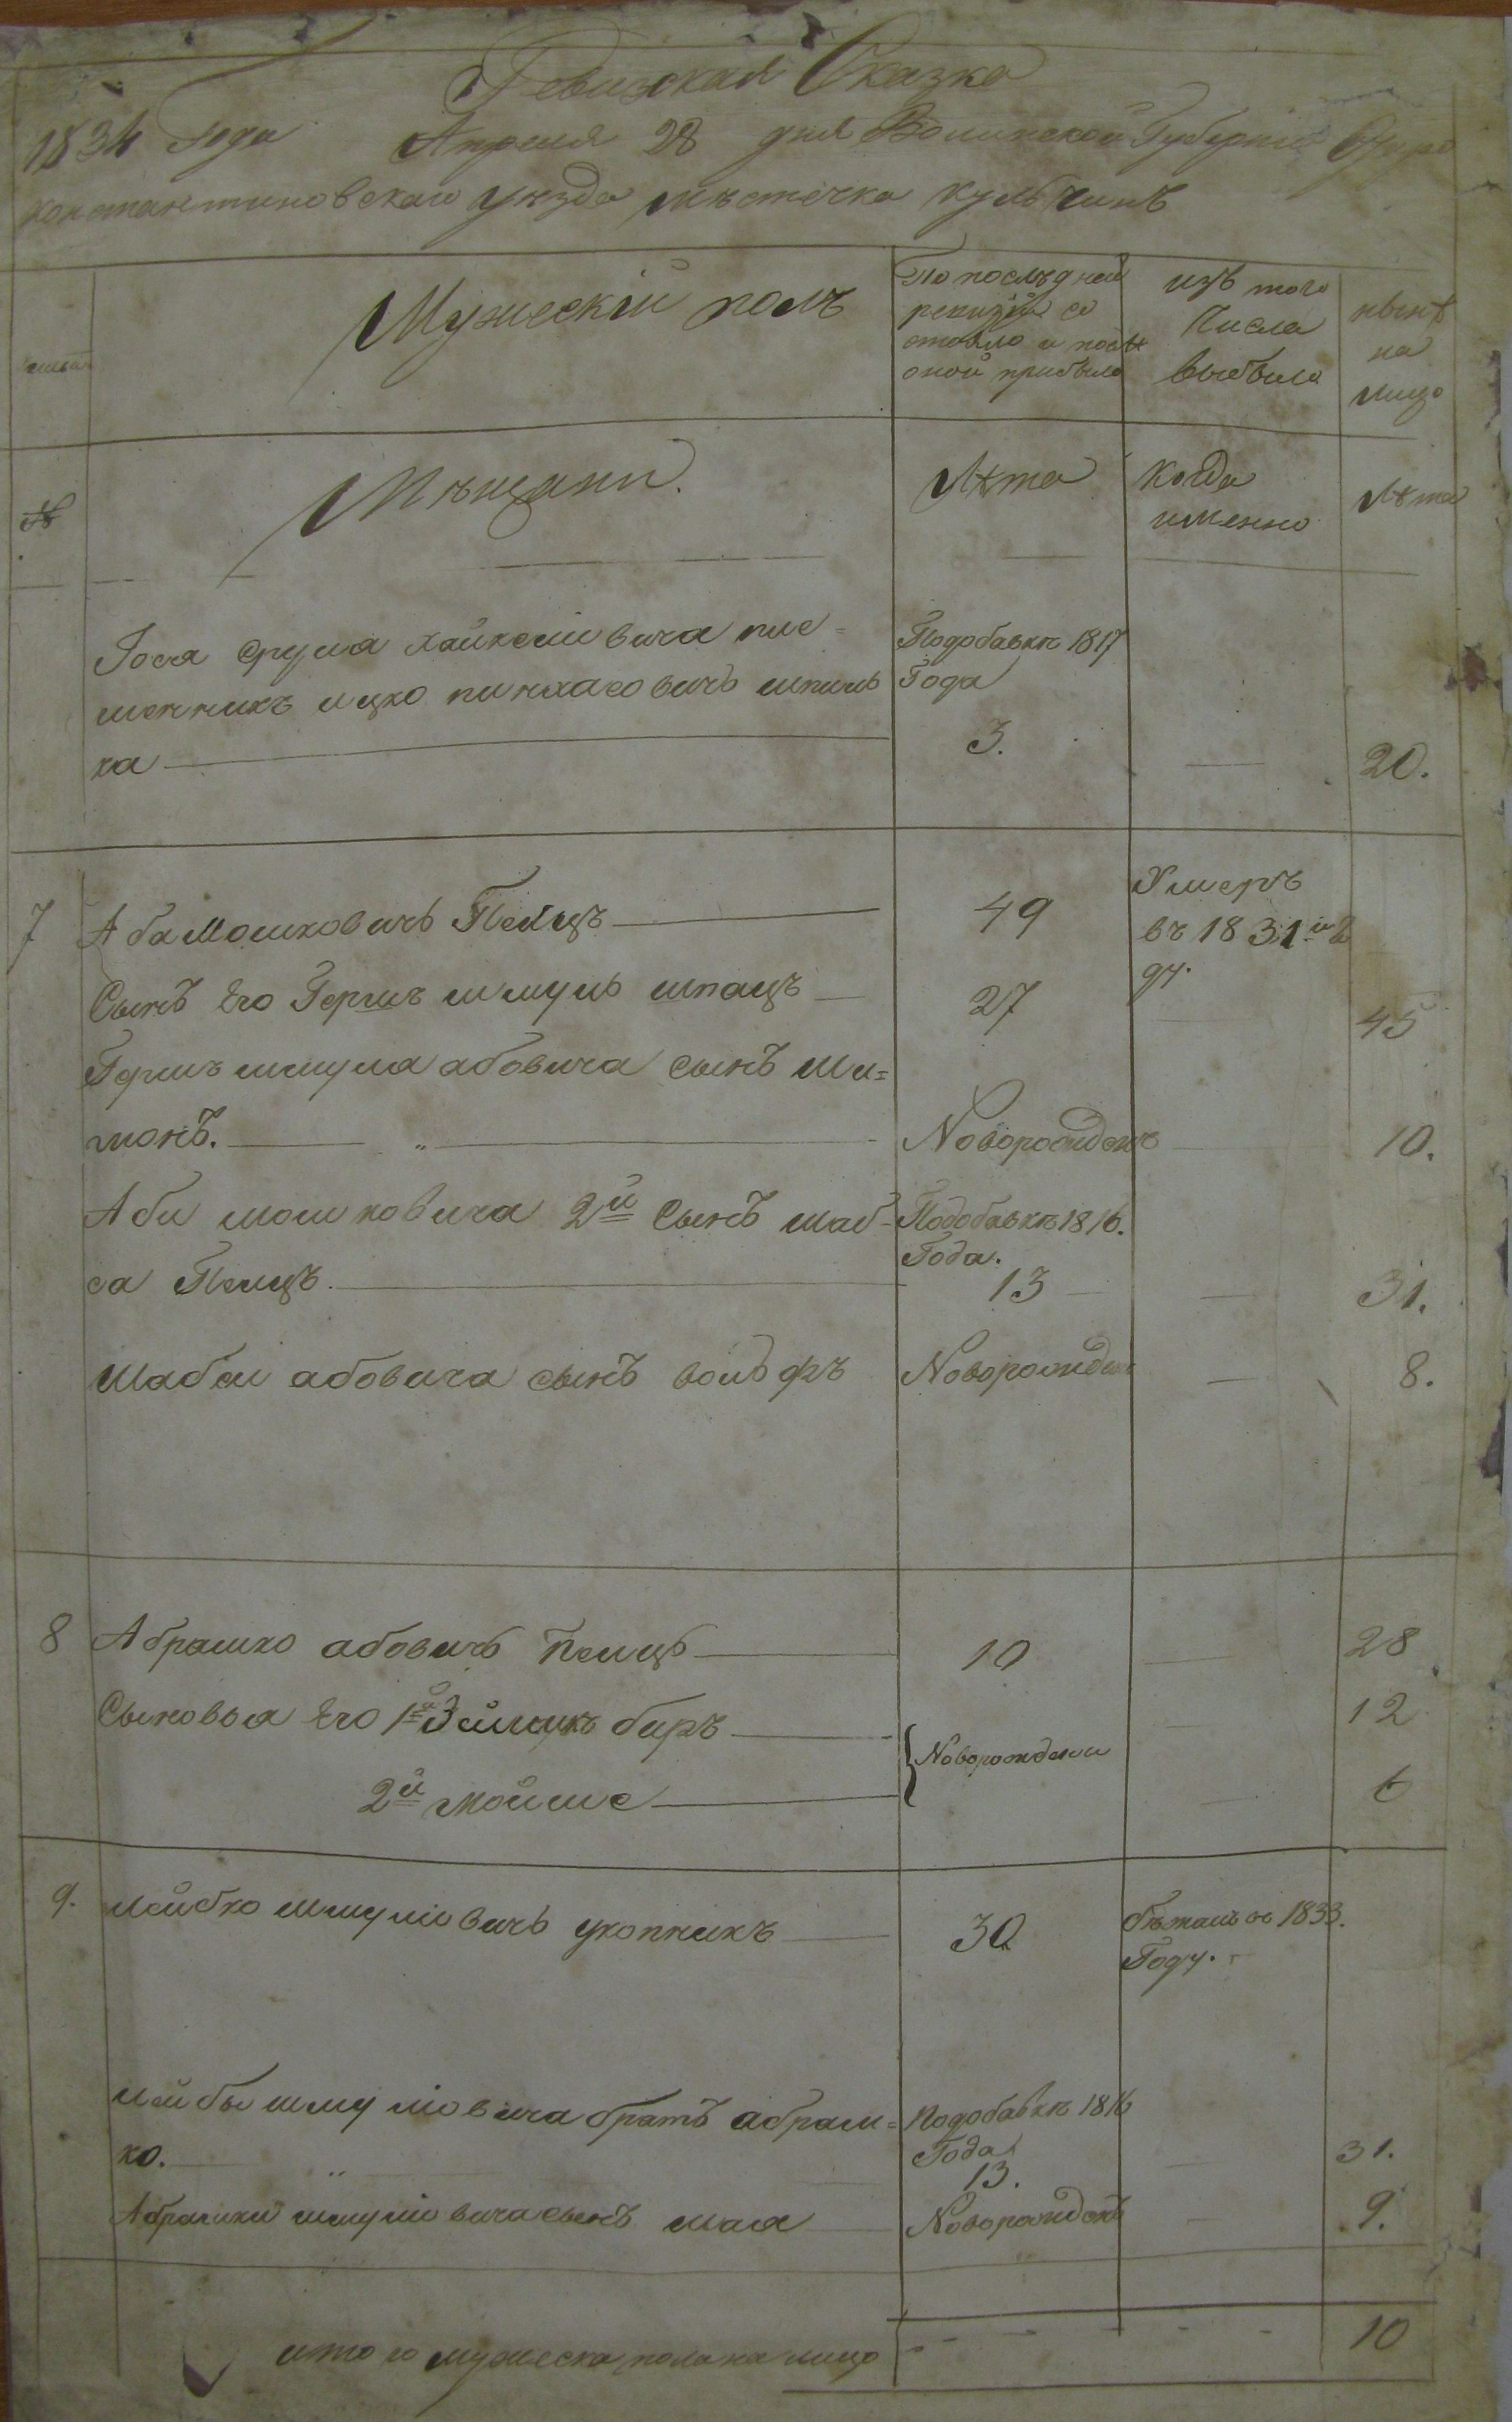 Ревизская Сказка
1834 года Апреля 28 дня Волинской Губерніи Старо
константиновскаго уѣзда мѣстечка Кульчинъ
Мужескій полъ
По послѣдней
ревизіи со
стояло и послѣ
оной прибыло
изъ того
Числа
выбыло
нынѣ
на
лицо
№
Мѣщани.
Лѣта
Когда
именно
Лѣта
Іося Срула Хайкелиовича пле=
менникъ ицко пинхасовичь шпиль
ка
Подобавкѣ 1817
Года
3.
20.
7
Аба Мошковичь Пелцъ
49
Умеръ
въ 1831м го
ду.
Сынъ Его Гершъ шмуль шпацъ
27
45
Гершъ шмуля абовича сынъ Ши=
монъ.
Новорожденъ
10.
Аби мошковича 2й Сынъ шаб-
са Пелцъ.
Подобавкѣ 1816.
Года.
13
31.
Шабси абовича сынъ вольфъ
Новорожден
8.
8 Абрашко абовичь Пелцъ
10
28
Сыновья Его 1й Зейликъ беръ
Новорождени
12
2й мойше
6
9. лейбко шмуліовичь укопникъ
30
бѣжалъ въ 1833.
Году.
лейбы шмуліовича братъ абраш=
ко.
Подобавкѣ 1816
Года
13.
31.
Абрашки шмуліовича сынъ шая
Новорожденъ
9.
итого мужеска пола на лицо
10